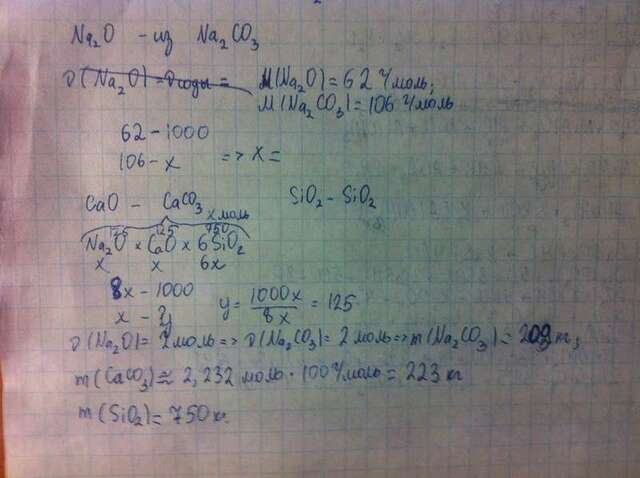 Na₂O - из Na₂CO₃
ν(Na₂O) = = M(Na₂O) = 62 г/моль;
M(Na₂CO₃) = 106 г/моль
62 - 1000
106 - x => x =
CaO - CaCO₃ SiO₂ - SiO₂
x моль
125 125 750
Na₂O × CaO × 6SiO₂
x x 6x
8x - 1000
x - y y = 1000x / 8x = 125
ν(Na₂O) = 2 моль => ν(Na₂CO₃) = 2 моль => m(Na₂CO₃) = 209 г;
m(CaCO₃) ≈ 2,232 моль · 100 г/моль = 223 кг
m(SiO₂) = 750 кг.